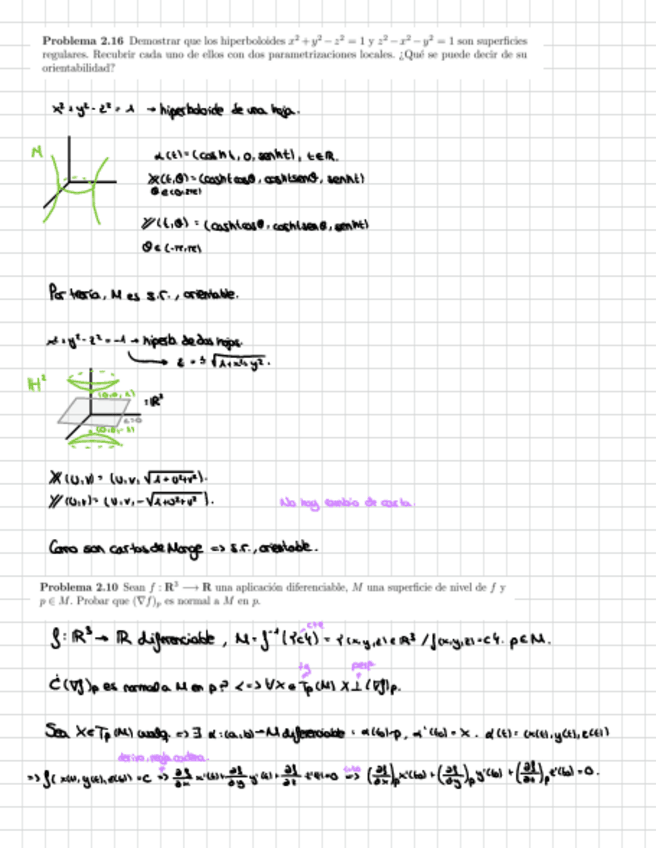 Problema 2.16 Demostrar que los hiperboloides x² + y² − z² = 1 y z² − x² − y² = 1 son superficies
regulares. Recubrir cada uno de ellos con dos parametrizaciones locales. ¿Qué se puede decir de su
orientabilidad?
x² + y² - z² = 1 → hiperboloide de una hoja.
M
α(t) = (cosh t, 0, senh t), t∈R.
X(t,θ) = (cosht cosθ, cosht senθ, senht)
θ∈(0,2π)
Y(t,θ) = (cosht cosθ, cosht senθ, senht)
θ∈(-π,π)
Por teoría, M es s.r., orientable.
x² + y² - z² = -1 → hiperb. de dos hojas.
z = ± √1+x²+y².
H²
(0,0,1)
: R²
z=0
(0,0,-1)
X(u,v) = (u,v, √1+u²+v²).
Y(u,v) = (u,v, -√1+u²+v²).
No hay cambio de carta.
Como son cartas de Monge => s.r., orientable.
Problema 2.10 Sean f : R³ ⟶ R una aplicación diferenciable, M una superficie de nivel de f y
p ∈ M. Probar que (∇f)ₚ es normal a M en p.
cte
f: R³ → R diferenciable, M = f⁻¹({c}) = {(x,y,z)∈R³ / f(x,y,z)=c}. p∈M.
tg perp
¿(∇f)p es normal a M en p? <=> ∀X∈Tp(M) X⊥(∇f)p.
Sea X∈Tp(M) cualq. => ∃ α:(a,b)→M diferenciable : α(t₀)=p, α'(t₀)=X. α(t) = (x(t), y(t), z(t))
deriva, regla cadena
=> f(x(t), y(t), z(t)) = c => ∂f/∂x x'(t) + ∂f/∂y y'(t) + ∂f/∂z z'(t) = 0 => (∂f/∂x)p x'(t₀) + (∂f/∂y)p y'(t₀) + (∂f/∂z)p z'(t₀) = 0.